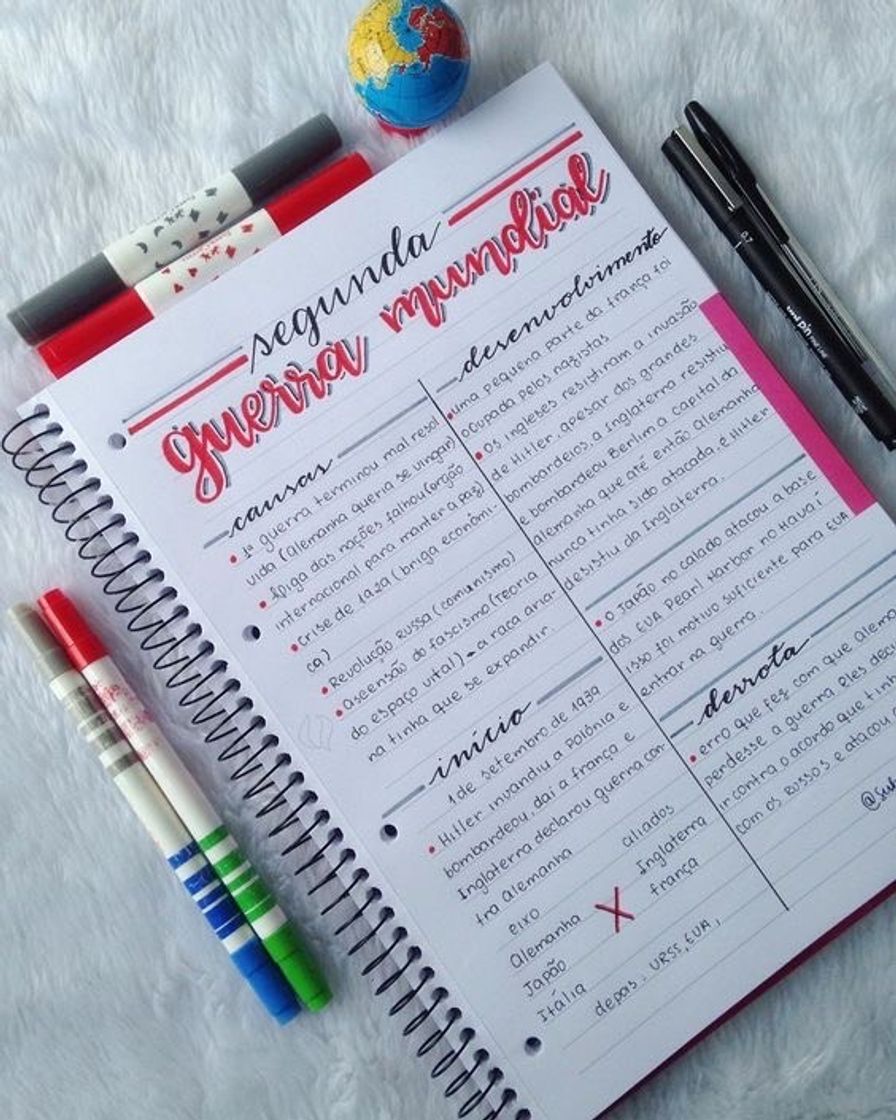 segunda
guerra mundial
causas
1ª guerra terminou mal resol
vida (Alemanha queria se vingar)
A liga das nações falhou (orgão
internacional para manter a paz)
Crise de 1929 (briga econômi-
ca)
Revolução Russa (comunismo)
Ascensão do fascismo (Teoria
do espaço vital) → a raça aria-
na tinha que se expandir.
início
1 de setembro de 1939
Hitler invandiu a Polônia e
bombardeou, daí a frança e
Inglaterra declarou guerra con-
tra Alemanha
eixo
aliados
Alemanha X Inglaterra
Japão
frança
Itália
depois: URSS, EUA,
desenvolvimento
uma pequena parte da frança foi
ocupada pelos nazistas
Os ingleses resistiram a invasão
de Hitler, apesar dos grandes
bombardeios, a Inglaterra resistiu
e bombardeou Berlim a capital da
Alemanha que até então Alemanha
nunca tinha sido atacada, e Hitler
desistiu da Inglaterra.
O Japão no calado atacou a base
dos EUA Pearl Harbor no Havaí
isso foi motivo suficiente para EUA
entrar na guerra.
derrota
erro que fez com que Alem
perdesse a guerra Eles deci
ir contra o acordo que tin
com os Russos e atacou
uni pin FINE LINE
0.7